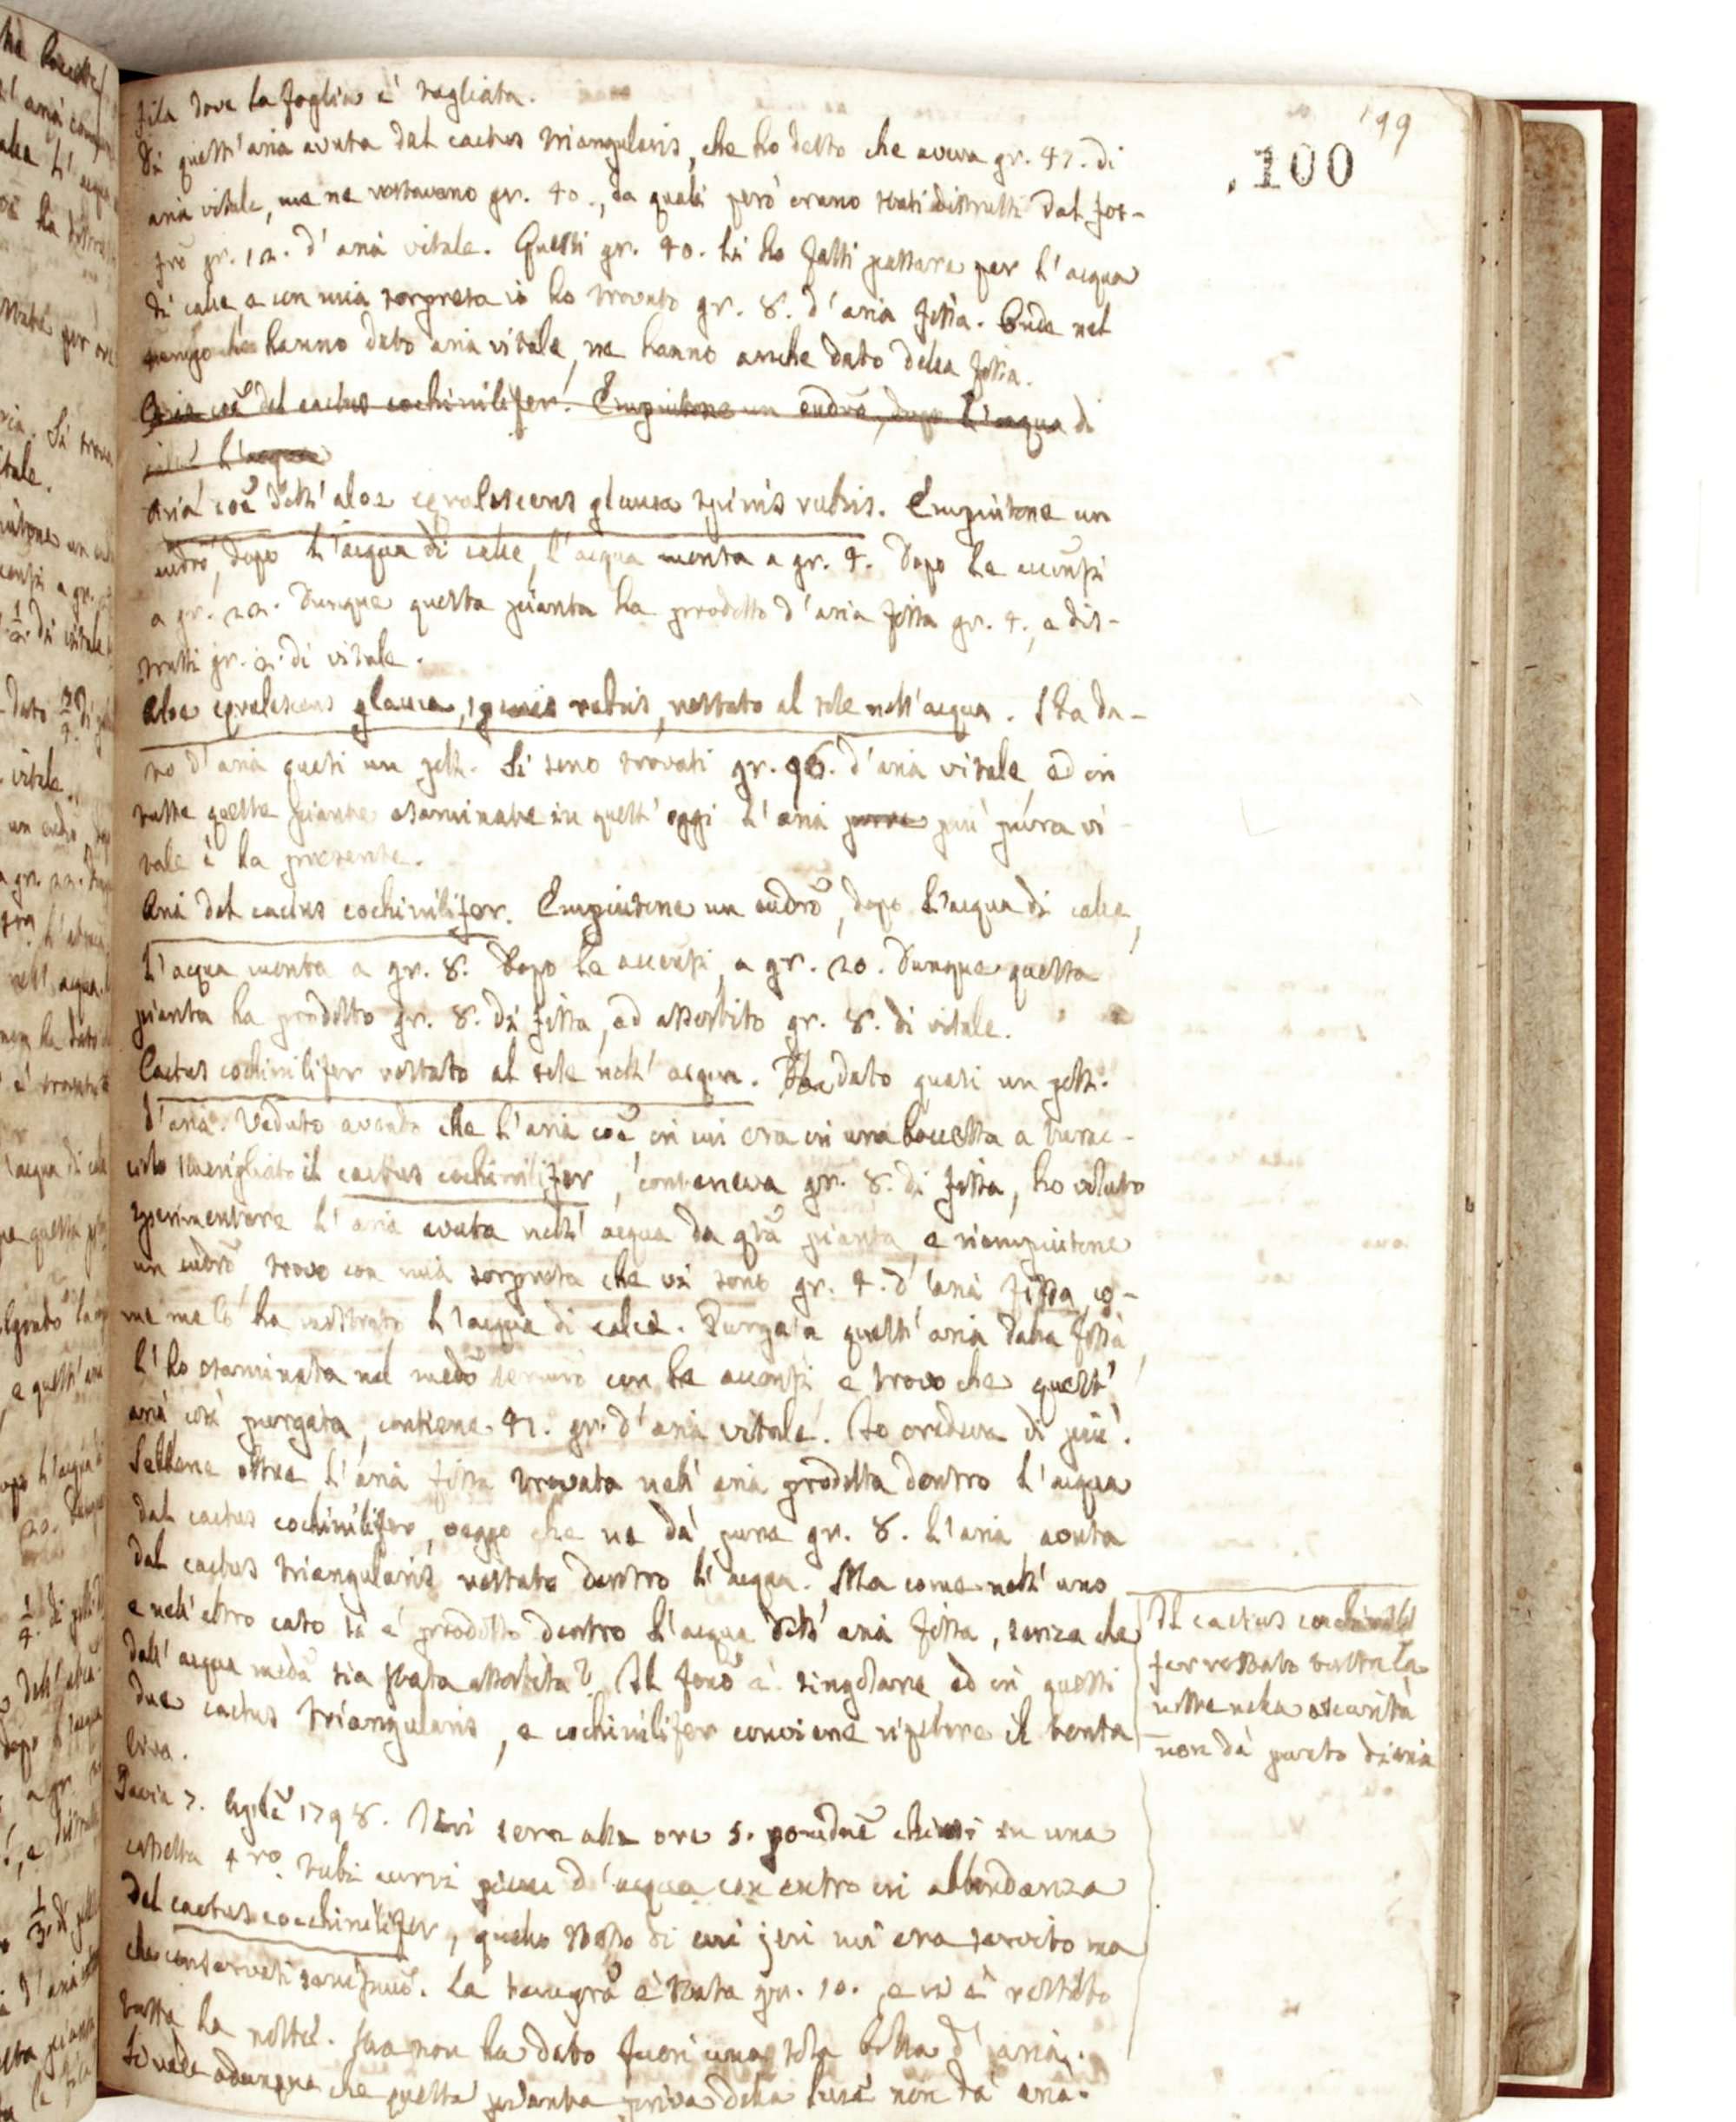 199
100
fila dove la foglia è tagliata.
Di quest'aria avuta dal cactus triangularis, che ho detto che aveva gr. 42. di
aria vitale, me ne restavano gr. 40., da quali però erano stati distrutti dal fos-
fro gr. 12. d'aria vitale. Questi gr. 40. li ho fatti passare per l'acqua
di calce, e con mia sorpresa io ho trovato gr. 8. d'aria fissa. Onde nel
hanno dato aria vitale, ne hanno anche dato della fissa.
Aria coe del cactus cochinilifer. Empiutone un eudro, dopo l'acqua di
l'acqua
Aria coe dell'aloe glauca spinis rubris. Empiutone un
eudro, dopo l'acqua di calce, l'acqua monta a gr. 4. Dopo le accensi
a gr. 22. Dunque questa pianta ha prodotto d'aria fissa gr. 4., e dis-
trutti gr. 2. di vitale.
Aloe glauca, spinis rubris, restato al sole nell'acqua. Ha da-
to d'aria quasi un pell. Si sono trovati gr. 46. d'aria vitale, ed in
tutte queste piante esaminate in quest'oggi l'aria più pura vi-
tale è la presente.
Aria del cactus cochinilifer. Empiutone un eudro, dopo l'acqua di calce,
l'acqua monta a gr. 8. Dopo le accensi, a gr. 20. Dunque questa
pianta ha prodotto gr. 8. di fissa, ed assorbito gr. 8. di vitale.
Cactus cochinilifer restato al sole nell'acqua. Ha dato quasi un pell.
d'aria. Veduto avendo che l'aria coe in cui era in una boccetta a turac-
ciolo smerigliato il cactus cochinilifer, conteneva gr. 8. di fissa, ho voluto
sperimentare l'aria avuta nell'acqua da qta pianta, e riempiutone
un eudro, trovo con mia sorpresa che vi sono gr. 4. d'aria fissa, co-
me me lo ha mostrato l'acqua di calce. Purgata quest'aria dalla fissa,
l'ho esaminata nel medo con le accensi, e trovo che quest'
aria così purgata, contiene 42. gr. d'aria vitale. Io credeva di più.
Sebbene oltre l'aria fissa trovata nell'aria prodotta dentro l'acqua
dal cactus cochinilifer, veggo che ne dà pure gr. 8. l'aria avuta
dal cactus triangularis restato dentro l'acqua. Ma come nell'uno
e nell'altro caso si è prodotto dentro l'acqua dell'aria fissa, senza che
dall'acqua meda sia stata assorbita? Il feno è singolare, ed in questi
due cactus triangularis, e cochinilifer conviene ripetere il tenta
tivo.
Pavia 7. 1798. Jeri sera alle ore 5. chiusi in una
cassetta 4ro tubi curvi pieni d'acqua con entro in abbondanza
del cactus cocchinilifer, quello stesso di cui jeri mi era servito ma
che conservasi. La tempra è stata gr. 10., e vi è restato
tutta la notte. Ma non ha dato fuori una sola bolla d'aria.
Si vede adunque che questa pianta priva della luce non dà aria.
Il cactus cochinili
fer restato tutta la
notte nella oscurità
non dà punto d'aria